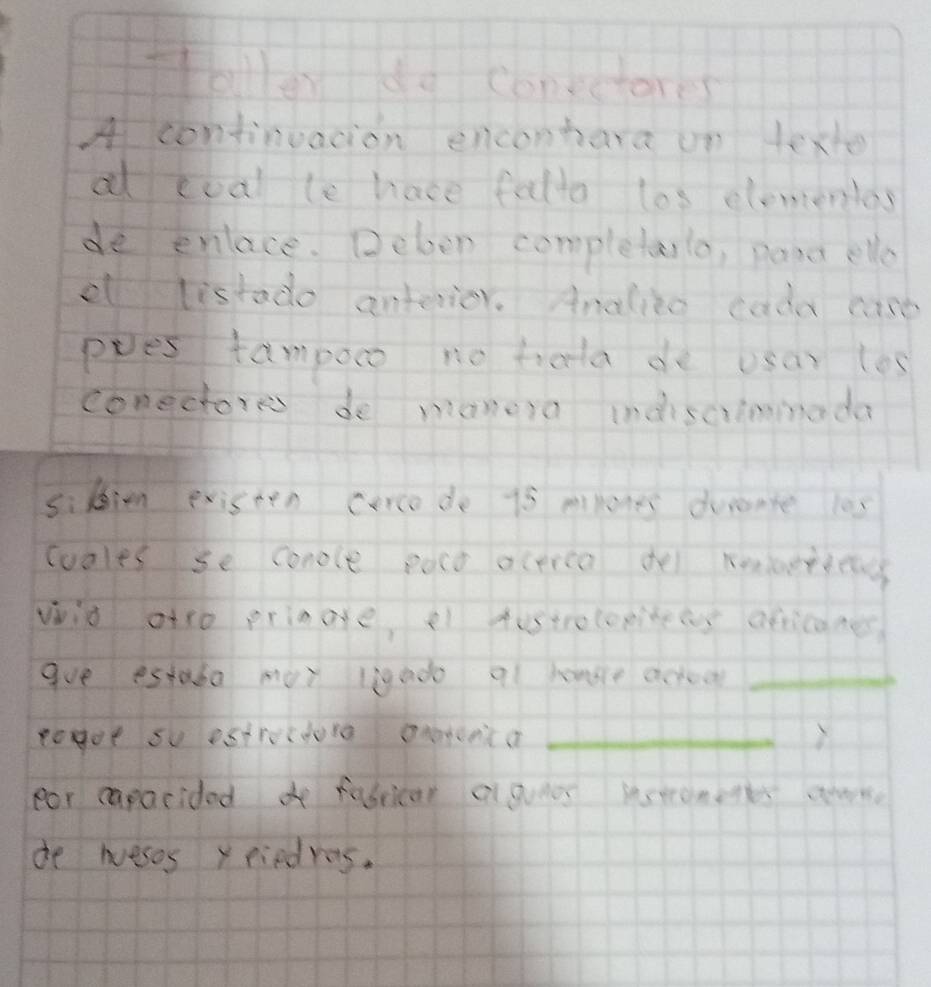 Taller de Conectores
A continuación encontrara un texto
al cual le hace falta los elementos
de enlace. Deben completarlo, para ello
el listado anterior. Analize cada caso
pues tampoco no trata de usar los
conectores de manera indiscriminada
si bien existen cerca de 15 millones durante los
cuales se conoce poco acerca del
vivio otro primate, el Australopitecus africanes,
que estaba muy ligado al hombre actual
porque su estructura anatonica y
por capacidad de fabricar algunos instrumentos
de huesos y piedras.